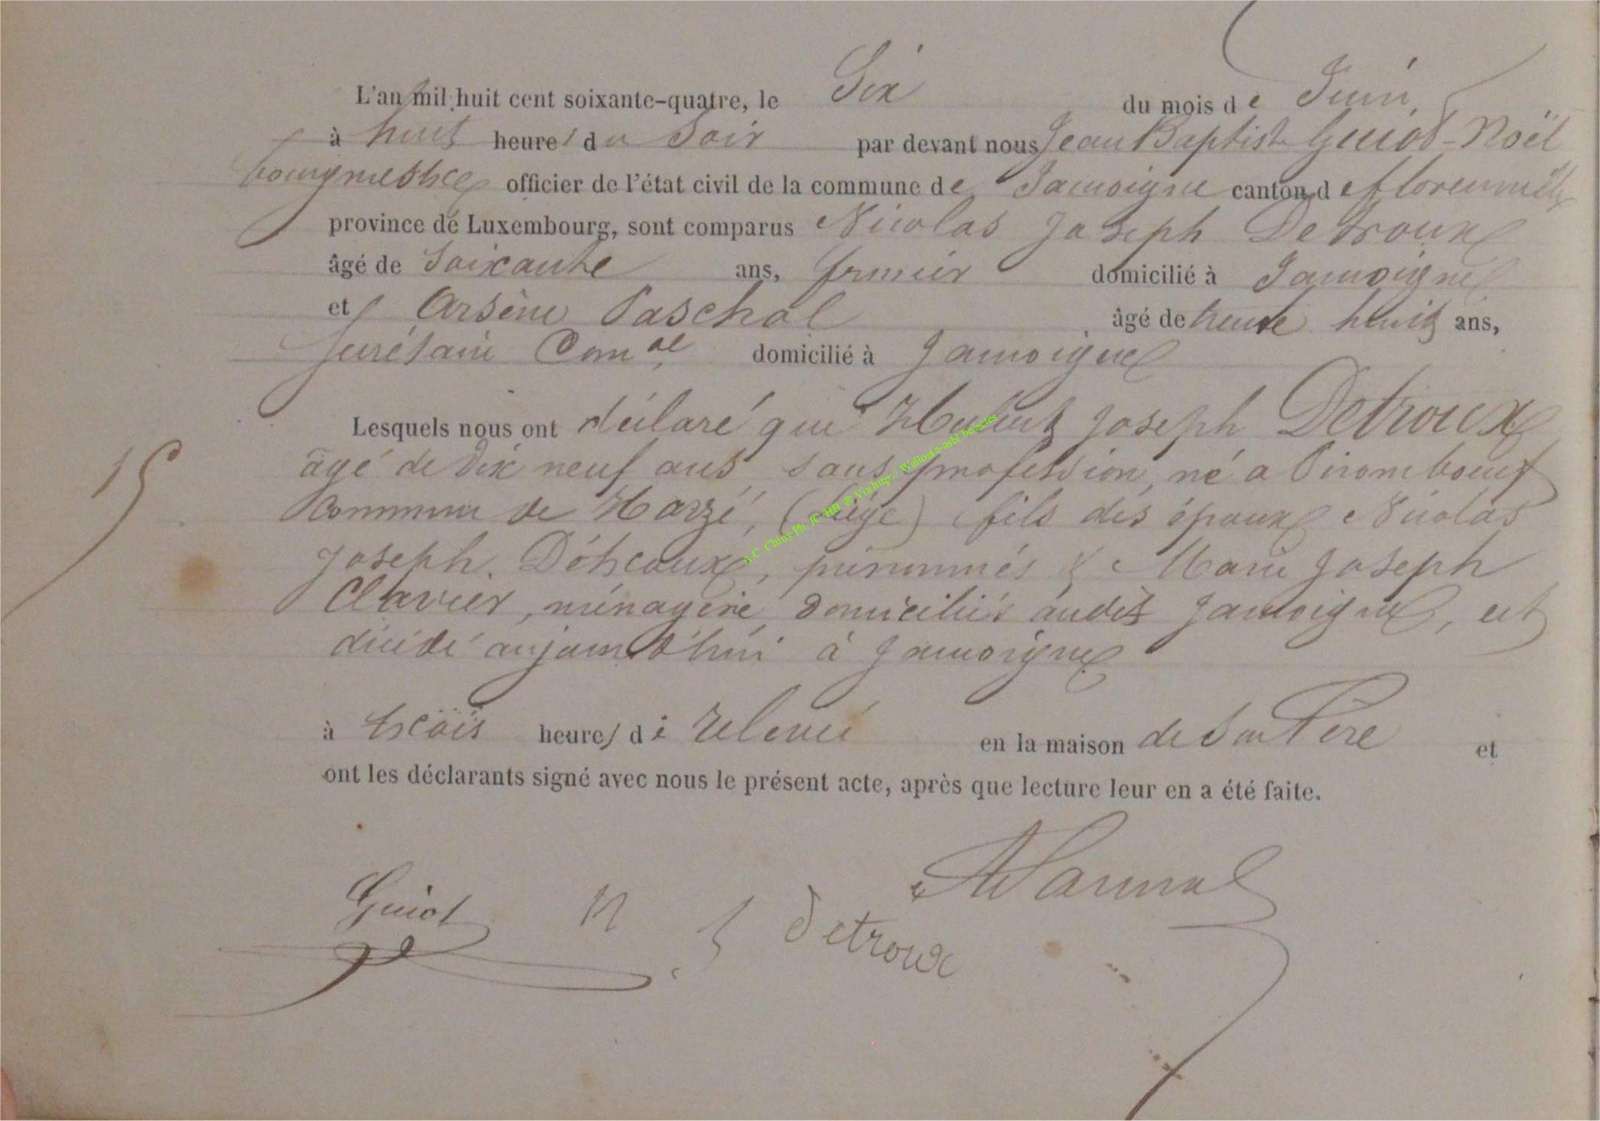 L'an mil huit cent soixante-quatre, le Six du mois de Juin
à huit heures du Soir par devant nous Jean Baptiste Guiot-Noël
bourgmestre officier de l'état civil de la commune de Jamoigne canton de florenville
province de Luxembourg, sont comparus Nicolas Joseph Detroux
âgé de Soixante ans, fermier domicilié à Jamoigne
et Arsène Paschal âgé de trente huit ans,
Secrétaire Com.al domicilié à Jamoigne
Lesquels nous ont déclaré que Hubert Joseph Detroux
âgé de Dix neuf ans, sans profession, né a Pirombœuf
commune de Harzé, (Liége) fils des époux Nicolas
Joseph Détroux, prénommés & Marie Joseph
Clavier, ménagère, domiciliés audit Jamoigne, est
décédé aujourd'hui à Jamoigne
15
à trois heures de relevée en la maison de Son Père et
ont les déclarants signé avec nous le présent acte, après que lecture leur en a été faite.
Guiot N J Detroux